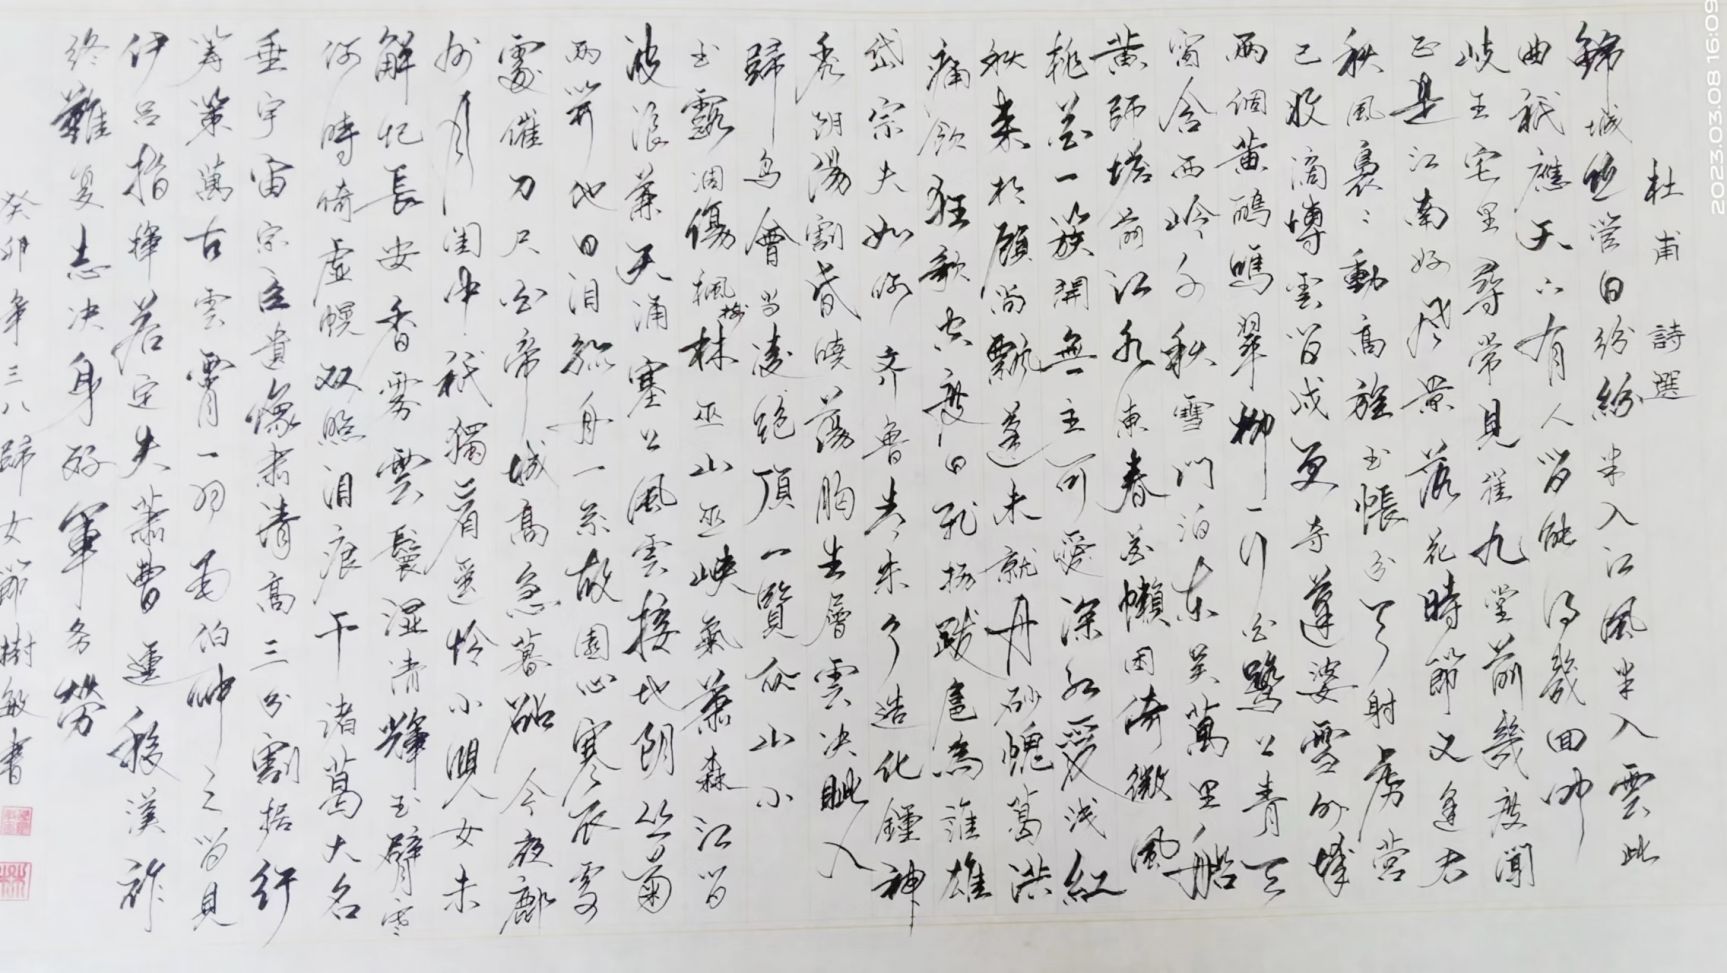 杜甫詩選
錦城丝管日纷纷半入江風半入雲此
曲祇應天上有人间能得幾回闻
岐王宅里尋常見崔九堂前幾度聞
正是江南好风景落花時節又逢君
秋風裊〻動高旌玉帳分弓射虏营
已收滴博雲间戍更夺蓬婆雪外城
两個黄鹂鳴翠柳一行白鹭上青天
窗含西岭千秋雪门泊东吴萬里船
黄師塔前江水東春光懶困倚微風
桃花一簇開無主可愛深红愛浅红
秋来相顾尚飘蓬未就丹砂愧葛洪
痛飲狂歌空度日飞扬跋扈為誰雄
岱宗夫如何齐鲁青未了造化鍾神
秀阴陽割昏曉荡胸生層雲决眦入
歸鸟會当凌绝頂一覽众山小
玉露凋傷楓樹林巫山巫峡氣萧森江间
波浪兼天涌塞上風雲接地阴丛菊
两開他日泪孤舟一系故園心寒衣處
處催刀尺白帝城高急暮砧今夜鄜
州月闺中祇獨看遥怜小兒女未
解忆長安香雾雲鬟湿清輝玉臂寒
何時倚虚幌双照泪痕干諸葛大名
垂宇宙宗臣遗像肃清高三分割据纡
筹策萬古雲霄一羽毛伯仲之间見
伊吕指揮若定失萧曹運移漢祚
终難复志决身歼軍务勞
癸卯年三八婦女節樹敏書
2023.03.08 16:09